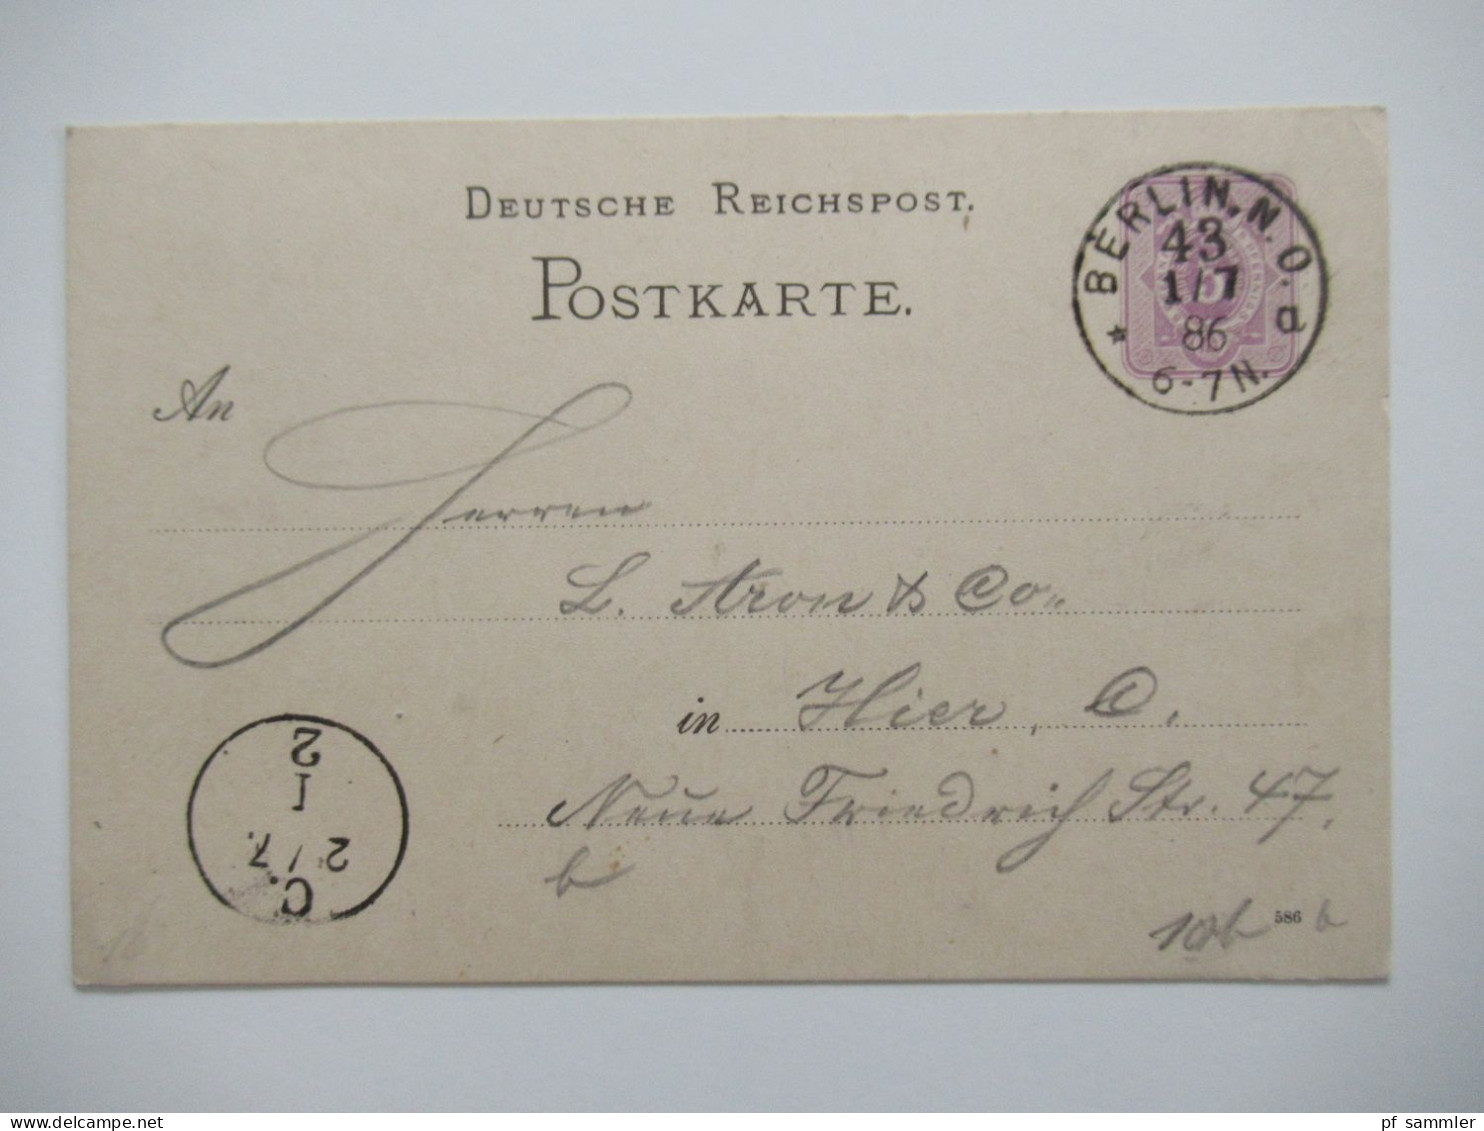 DEUTSCHE REICHSPOST.
POSTKARTE.
BERLIN. N. O. a
43
1/7
86
6-7N.
An
Herren
L. Aron & Co.
in Hier, C.
Neue Friedrich Str. 47.
b
C.
2/7.
1
2
586
pf sammler